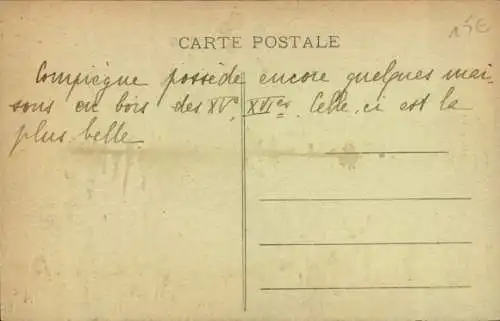 15€
CARTE POSTALE
Compiègne possède encore quelques mai-
sons en bois des XVe, XVIes. Celle, ci est la
plus belle.